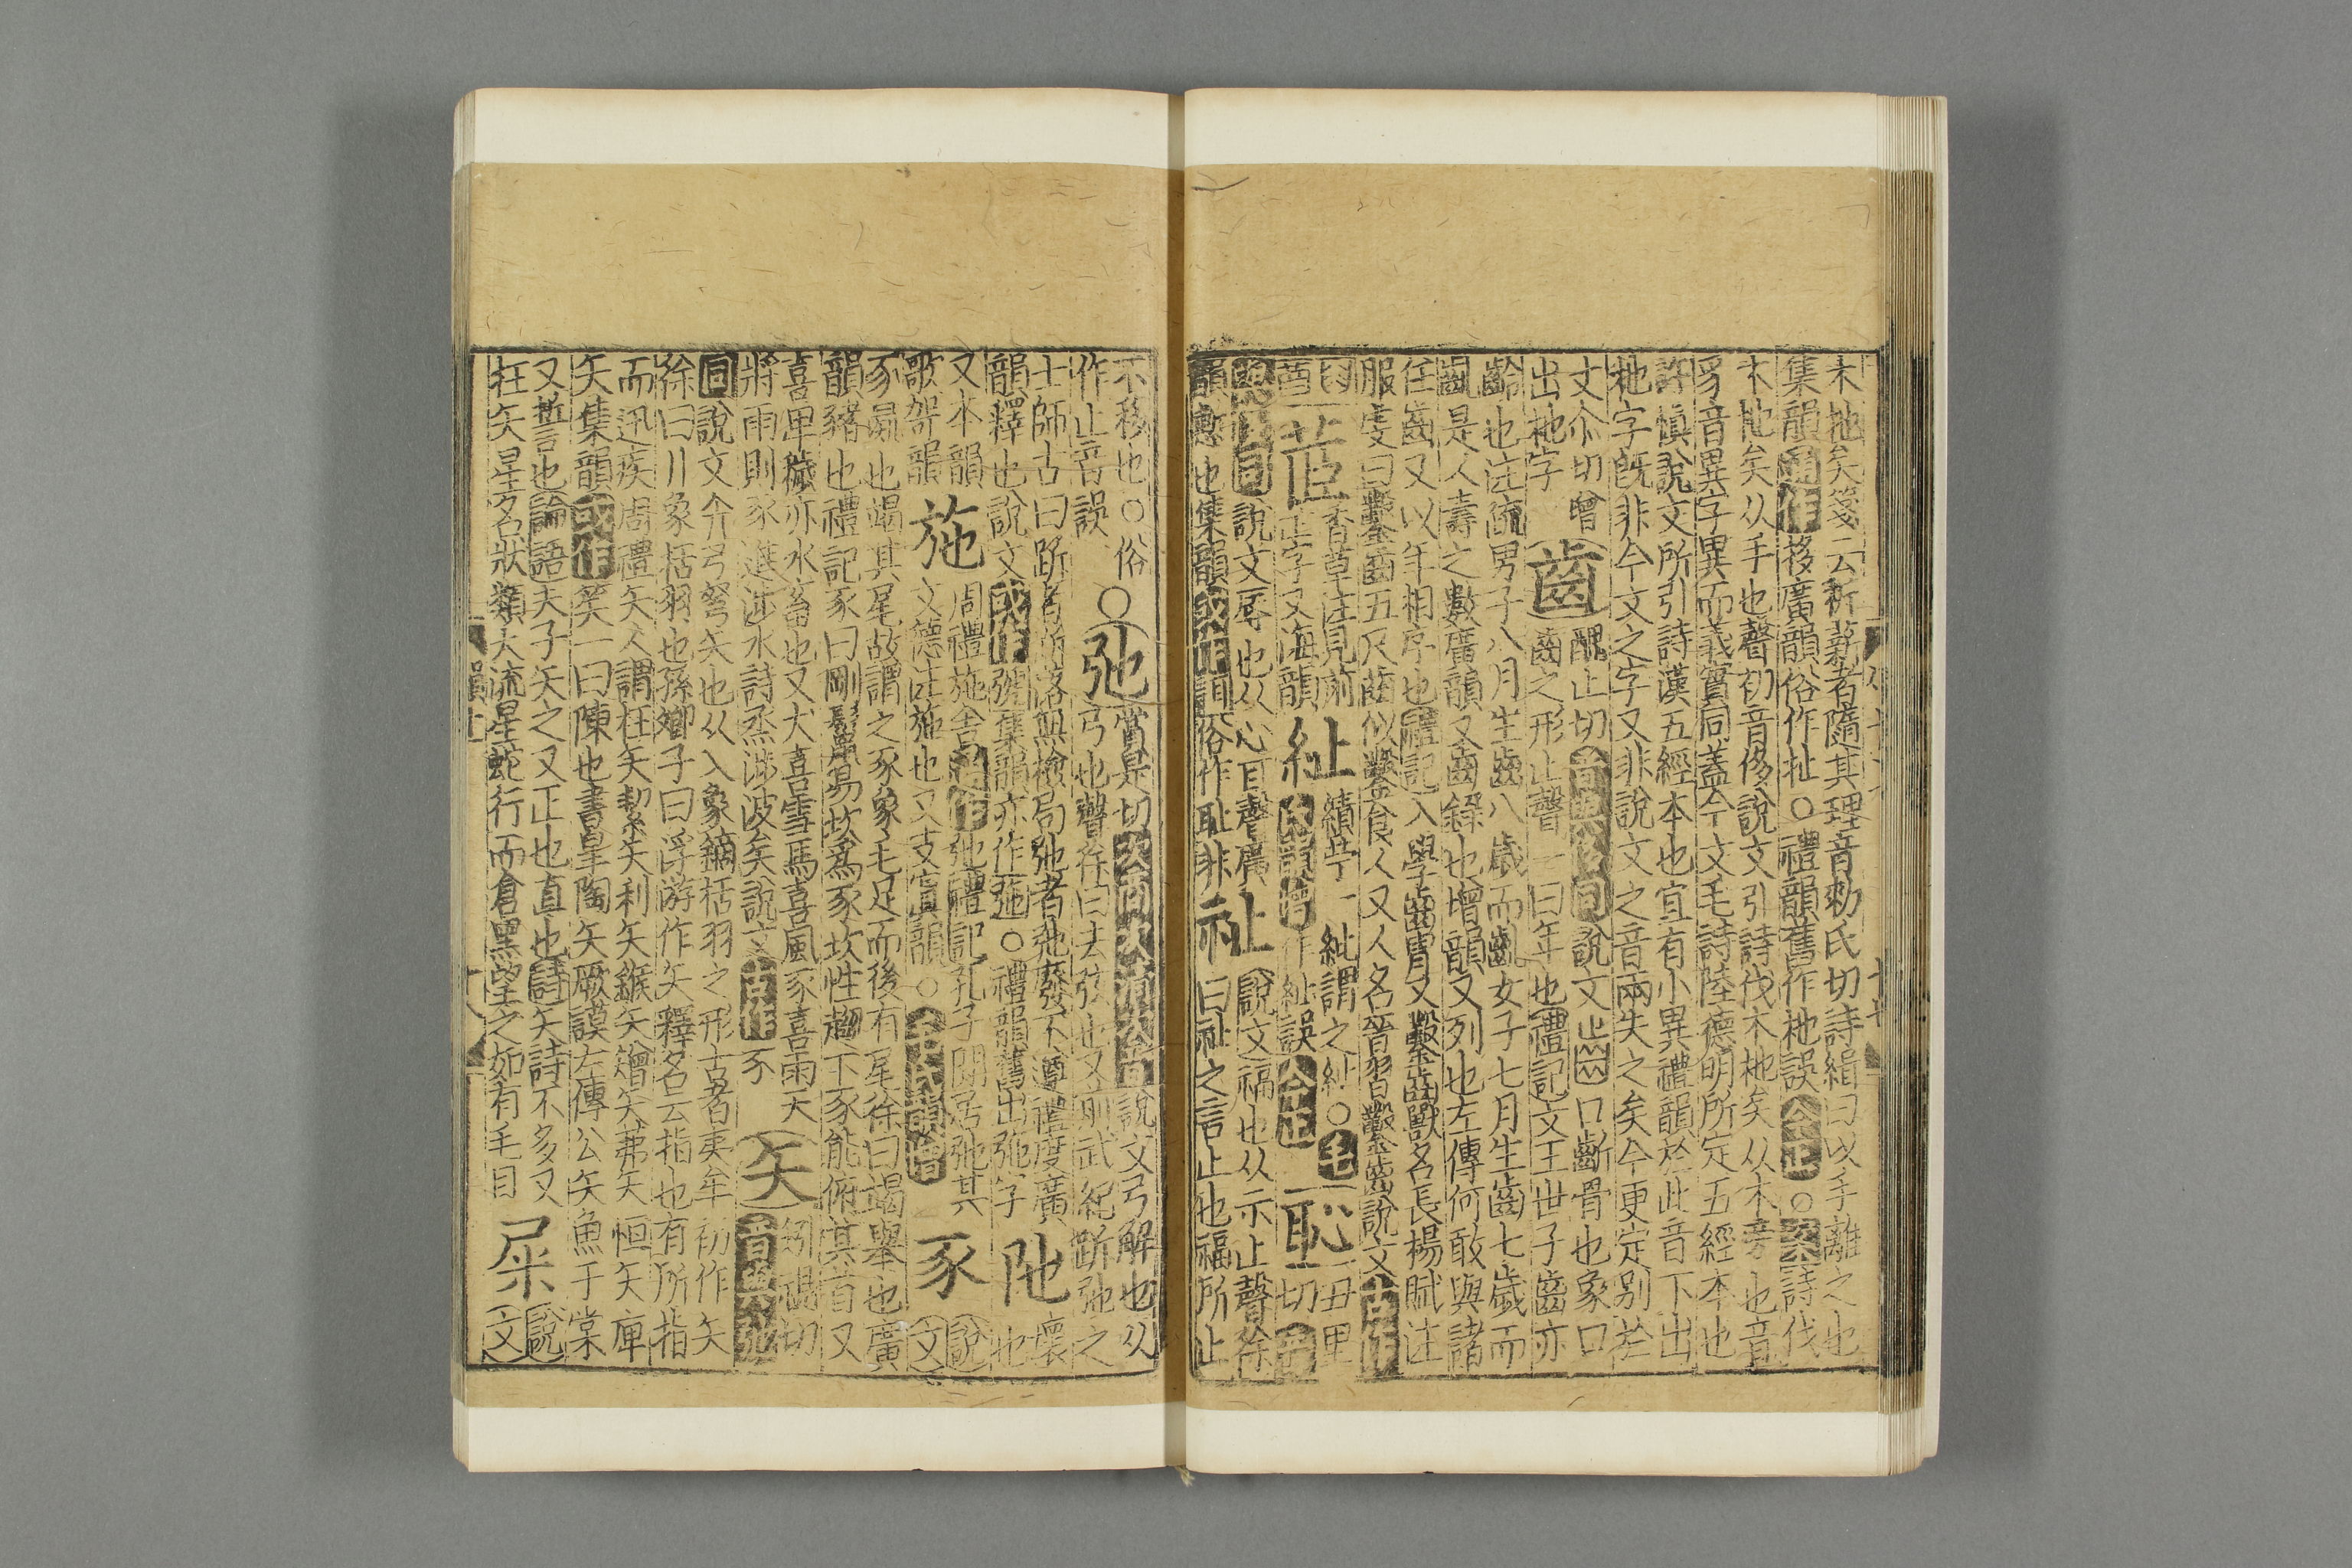 木杝矣箋云析薪者隨其理音勑氏切詩緝曰以手離之也
集韻通作拸廣韻俗作扯○禮韻舊作杝誤今正○案詩伐
木杝矣从手也聲初音侈說文引詩伐木杝矣从木旁也音
豸音異字異而義實同蓋今文毛詩陸德明所定五經本也
許慎說文所引詩漢五經本也宜有小異禮韻於此音下出
杝字旣非今文之字又非說文之音兩失之矣今更定別於
丈尒切增
出杝字
齒
醜止切音與侈同說文口齗骨也象口
齒之形止聲一曰年也禮記文王世子齒亦
齡也注疏男子八月生齒八歲而齓女子七月生齒七歲而
齓是人壽之數廣韻又齒錄也增韻又列也左傳何敢與諸
任齒又以年相序也禮記入學齒冑又鑿齒獸名長楊賦注
服虔曰鑿齒齒五尺齒似鑿食人又人名晉習鑿齒說文古作
茝
香草注見前
正字又海韻
紕
績苧一紕謂之紕○毛
作紕誤今正
恥
丑里
切
說文辱也从心耳聲廣
韻慙也集韻或作誀俗作耻非
祉
說文福也从示止聲徐
曰祉之言止也福所止
不移也○俗
作止音誤
○弛
賞是切說文弓解也从
弓也聲徐曰去弦也又前武紀跅弛之
士師古曰跅者跅落無檢局弛者弛廢不遵禮度廣
韻釋也說文或作𢐋集韻亦作㢮○禮韻舊出弛字
阤
壞
也
又本韻
歌哿韻
施
周禮施舍通作弛禮記孔子閒居弛其
文德注施也又支寘韻○毛氏韻增
豕
說
文
豕彘也竭其尾故謂之豕象毛足而後有尾徐曰竭舉也廣
韻豬也禮記豕曰剛鬣易坎爲豕坎性趨下豕能俯其首又
喜卑穢亦水畜也又犬喜雪馬喜風豕喜雨天
將雨則豕進涉水詩烝涉波矣說文古作豕
矢
矧視切
音與弛
同說文弓弩矢也从入象鏑栝羽之形古者夷牟初作矢
徐曰川象栝羽也孫卿子曰浮游作矢釋名云指也有所指
而迅疾周禮矢人謂枉矢絜矢利矢鍭矢矰矢茀矢恒矢庳
矢集韻或作笶一曰陳也書皋陶矢厥謨左傳公矢魚于棠
又誓也論語夫子矢之又正也直也詩矢詩不多又
枉矢星名狀類大流星蛇行而倉黑望之如有毛目
屎
說
文